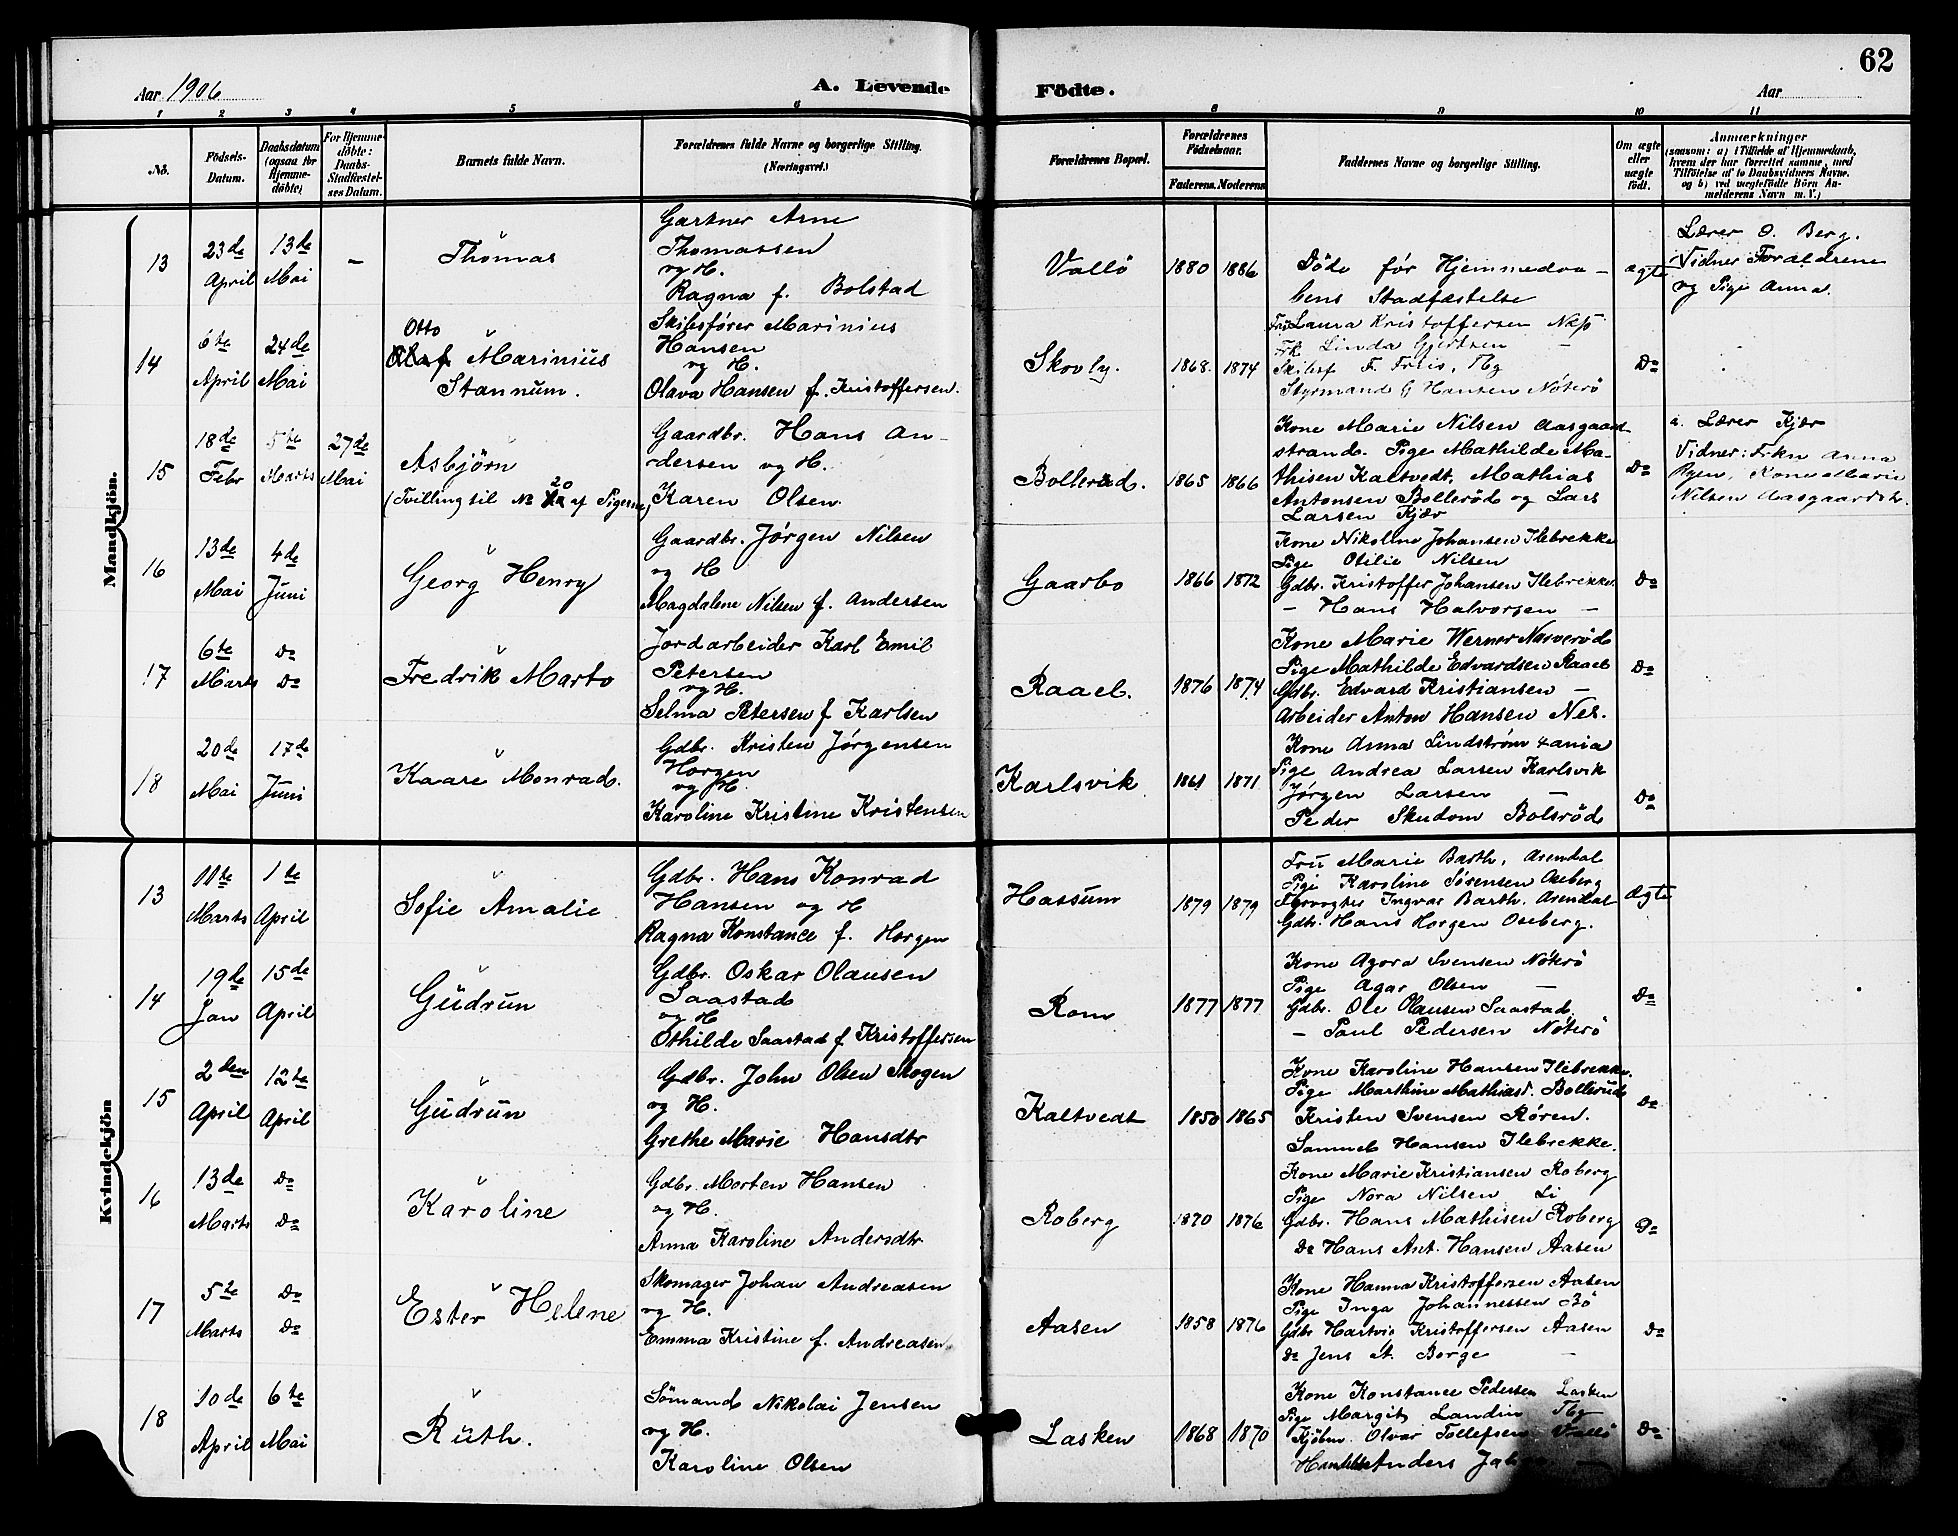 62
Aar 1906
A. Levende
Födte.
Aar
1 2 3 4 5 6 8 9 10 11
No.
Födsels-Datum.
Daabsdatum (ogsaa for Hjemmedöbte)
For Hjemmedöbte: Daabs-Stadfæstelses Datum.
Barnets fulde Navn.
Forældrenes fulde Navne og borgerlige Stilling. (Næringsvei.)
Forældrenes Bopæl.
Forældrenes Födselsaar.
Faderens. Moderens
Faddernes Navne og borgerlige Stilling.
Om ægte eller uægte födt.
Anmærkninger
(saasom: a) i Tilfælde af Hjemmedaab,
hvem der har forrettet samme, med
Tilföielse af to Daabsvidners Navne.
og b) ved uægtefödte Börn Anmelderens Navn m. V.)
Mandkjön.
13
23de April
13de Mai
–
Thomas
Gartner Arne
Thomassen
og H.
Ragna f. Bolstad
Vallö
1880 1886
Döde før Hjemmedaa–
bens Stadfæstelse
ægte
Lærer O. Berg.
Vidner Forældrene
og Pige Anna.
14
6te April
24de Mai
Otto
Olaf Marinius
Stannum.
Skibsfører Marinius
Hansen
og H.
Olava Hansen f. Kristoffersen.
Skovly.
1868. 1874
Fru Laura Kristoffersen
Frk Linda Gjertsen –
Skibsf F. Friis, Tbg
Styrmand G Hansen Nöterö
Do
15
18de Febr
5te Marts
27de Mai
Asbjörn
(Tvilling til No 20 af Pigerne)
Gaardbr. Hans An–
dersen og H.
Karen Olsen
Bolleröd.
1865 1866
Kone Marie Nilsen Aasgaard
strand. Pige Mathilde Ma–
thisen Kaltvedt, Mathias
Antonsen Bolleröd og Lars
Larsen Kjær
Do
a. Lærer Kjær
Vidner: Frkn Anna
Ryen, Kone Marie
Nilsen Aasgaardstr.
16
13de Mai
4de Juni
Georg Henry
Gaardbr. Jørgen Nilsen
og H
Magdalene Nilsen f. Andersen
Gaarbo
1866 1872
Kone Nikoline Johansen Ilebrekke
Pige Otilie Nilsen
Gdbr. Kristoffer Johansen Ilebrekke.
– Hans Halvorsen –
Do
17
6te Marts
Do Do
Fredrik Marto
Jordarbeider Karl Emil
Petersen
og H.
Selma Petersen f Karlsen
Raael.
1876 1874
Kone Marie Werner Nasveröd
Pige Mathilde Edvardsen Raael
Gdbr. Edvard Kristiansen –
Arbeider Anton Hansen Nes.
Do
18
20de Mai
17de Juni
Kaare Monrad.
Gdbr. Kristen Jørgensen
Horgen
og H.
Karoline Kristine Kristensen
Karlsvik
1861 1871
Kone Anna Lindstrøm
Pige Andrea Larsen Karlsvik
Jørgen Larsen –
Peder Skudom Bolsröd
Do
Kvindekjön
13
11te Marts
1te April
Sofie Amalie
Gdbr. Hans Konrad
Hansen og H
Ragna Konstance f. Horgen
Hassum
1879 1879
Fru Marie Barth, Arendal
Pige Karoline Sørensen Oseberg
Ingvar Barth, Arendal
Gdbr. Hans Horgen Oseberg.
Ægte
14
19de Jan
15de April
Gudrun
Gdbr. Oskar Olausen
Saastad
og H
Othilde Saastad f Kristoffersen
Rom
1877 1877
Kone Agora Svensen Nöterö
Pige Agar Olsen –
Gdbr. Ole Olausen Saastad
– Paul Pedersen Nöterö
Do
15
2den April
12te April
Gudrun
Gdbr. John Olsen Skogen
og H.
Grethe Marie Hansdtr
Kaltvedt
1850 1865
Kone Karoline Hansen Ilebrekke.
Pige Marthine Mathiasd. Bolleröd
Kristen Svensen Røren.
Samuel Hansen Ilebrekke.
Do
16
13de Marts
Do Do
Karoline
Gdbr. Morten Hansen
og H.
Anna Karoline Andersdtr
Roberg
1870 1876
Kone Marie Kristiansen Roberg
Pige Nora Nilsen Li
Gdbr. Hans Mathisen Roberg
Do Hans Ant. Hansen Aasen
Do
17
5te Marts
Do Do
Ester Helene
Skomager Johan Andreasen
og H.
Emma Kristine f. Andreasen
Aasen
1858 1876
Kone Hanna Kristoffersen Aasen
Pige Inga Johannessen Bö
Gdbr Hartvig Kristoffersen Aasen
Do Jens A. Borge –
Do
18
10de April
6te Mai
Ruth.
Sömand Nikolai Jensen
og H.
Karoline Olsen
Lasken
1868 1870
Kone Konstance Pedersen Lasken
Pige Margit Landin Tbg
Kjöbm. Olvar Tollefsen Vallö
Anders –
Do